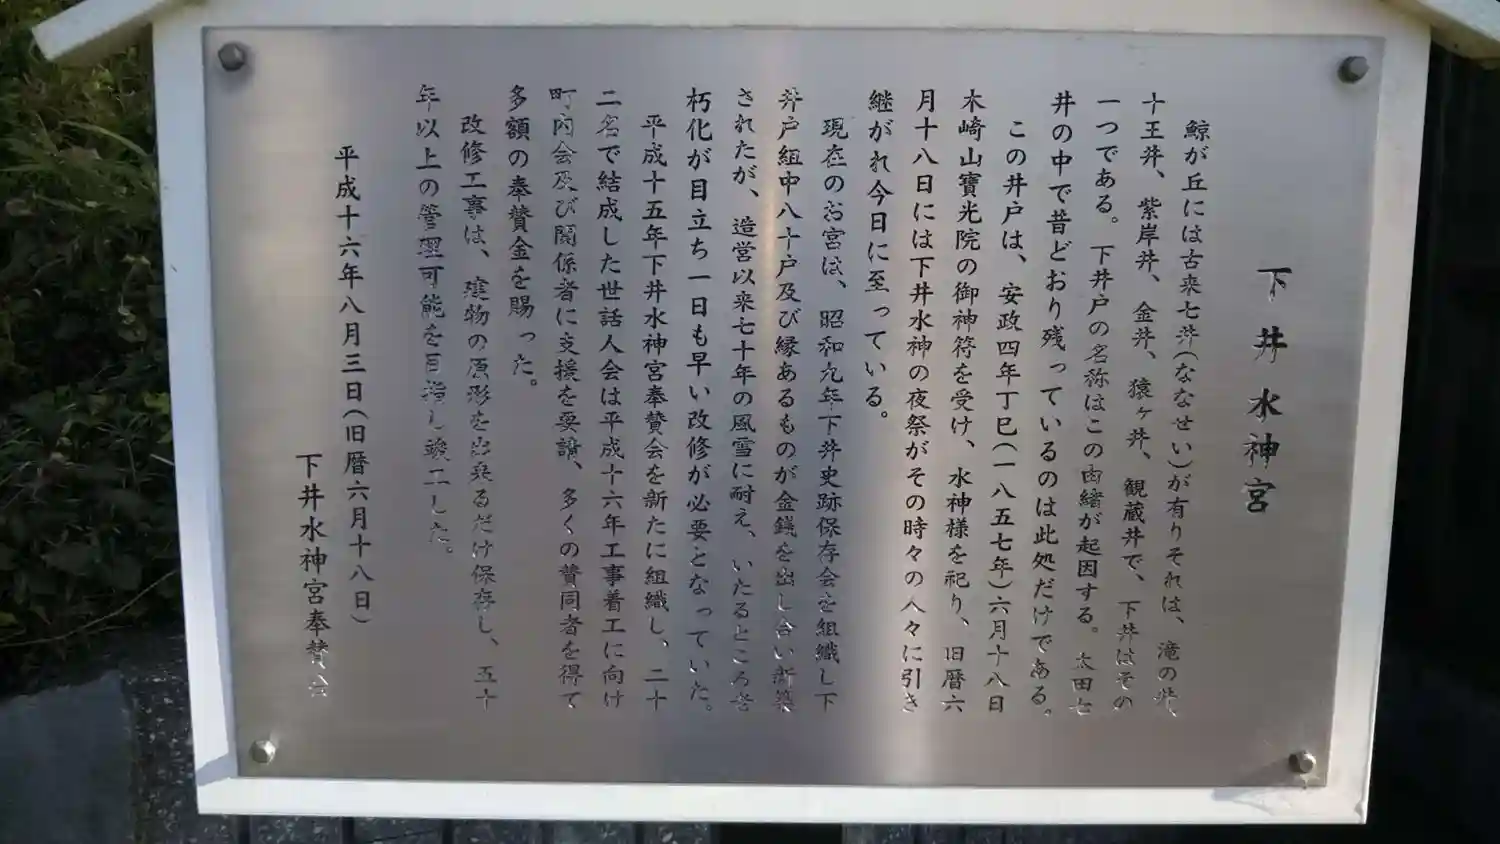 下井水神宮
鯨が丘には古来七井(ななせい)が有りそれは、滝の井、
十王井、紫岸井、金井、猿ヶ井、観蔵井で、下井はその
一つである。下井戸の名称はこの由緒が起因する。太田七
井の中で昔どおり残っているのは此処だけである。
この井戸は、安政四年丁巳(一八五七年)六月十八日
木崎山寶光院の御神符を受け、水神様を祀り、旧暦六
月十八日には下井水神の夜祭がその時々の人々に引き
継がれ今日に至っている。
現在のお宮は、昭和九年下井史跡保存会を組織し下
井戸組中八十戸及び縁あるものが金銭を出し合い新築
されたが、造営以来七十年の風雪に耐え、いたるところ老
朽化が目立ち一日も早い改修が必要となっていた。
平成十五年下井水神宮奉賛会を新たに組織し、二十
二名で結成した世話人会は平成十六年工事着工に向け
町内会及び関係者に支援を要請、多くの賛同者を得て
多額の奉賛金を賜った。
改修工事は、建物の原形を出来るだけ保存し、五十
年以上の管理可能を目指し竣工した。
平成十六年八月三日(旧暦六月十八日)
下井水神宮奉賛会